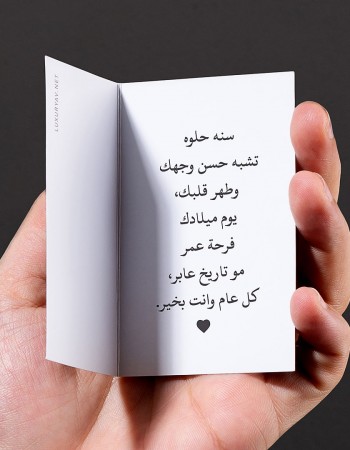 سنه حلوه
تشبه حسن وجهك
وطهر قلبك،
يوم ميلادك
فرحة عمر
مو تاريخ عابر،
كل عام وانت بخير.